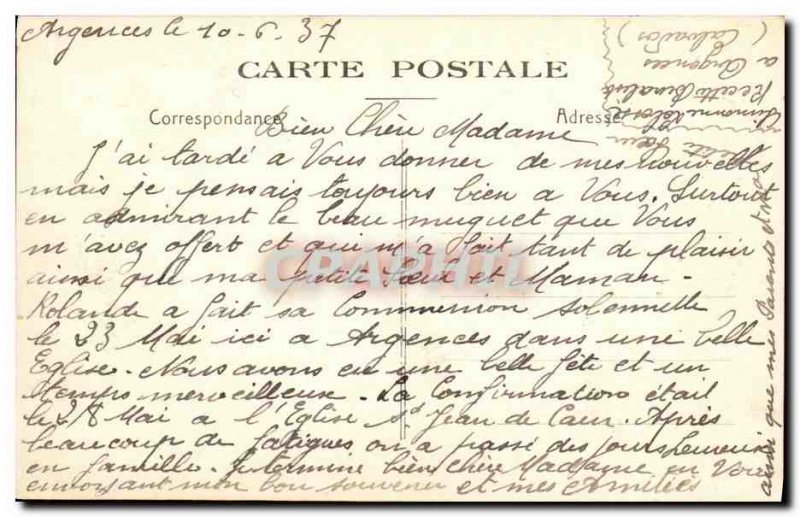 Argences le 10-6-37
CARTE POSTALE
Correspondance
Adresse
Bien Chère Madame
J'ai tardé a Vous donner de mes nouvelles
mais je pensais toujours bien a Vous. Surtout
en admirant le beau muguet que Vous
m'avez offert et qui m'a fait tant de plaisir
ainsi que ma petite Sœur et Maman -
Rolande a fait sa Communion Solennelle
le 23 Mai ici a Argences dans une belle
Eglise. Nous avons eu une belle fête et un
temps merveilleux. La Confirmation était
le 28 Mai a l'Eglise St Jean de Caen. Après
beaucoup de fatigues on a passé des jours heureux
en famille. Je termine bien chère Madame en Vous
envoyant mon bon souvenir et mes Amitiés
ainsi que mes Parents et ma
petite Sœur
Simonne
Recette
a Argences
(Calvados)
CPAPHIL